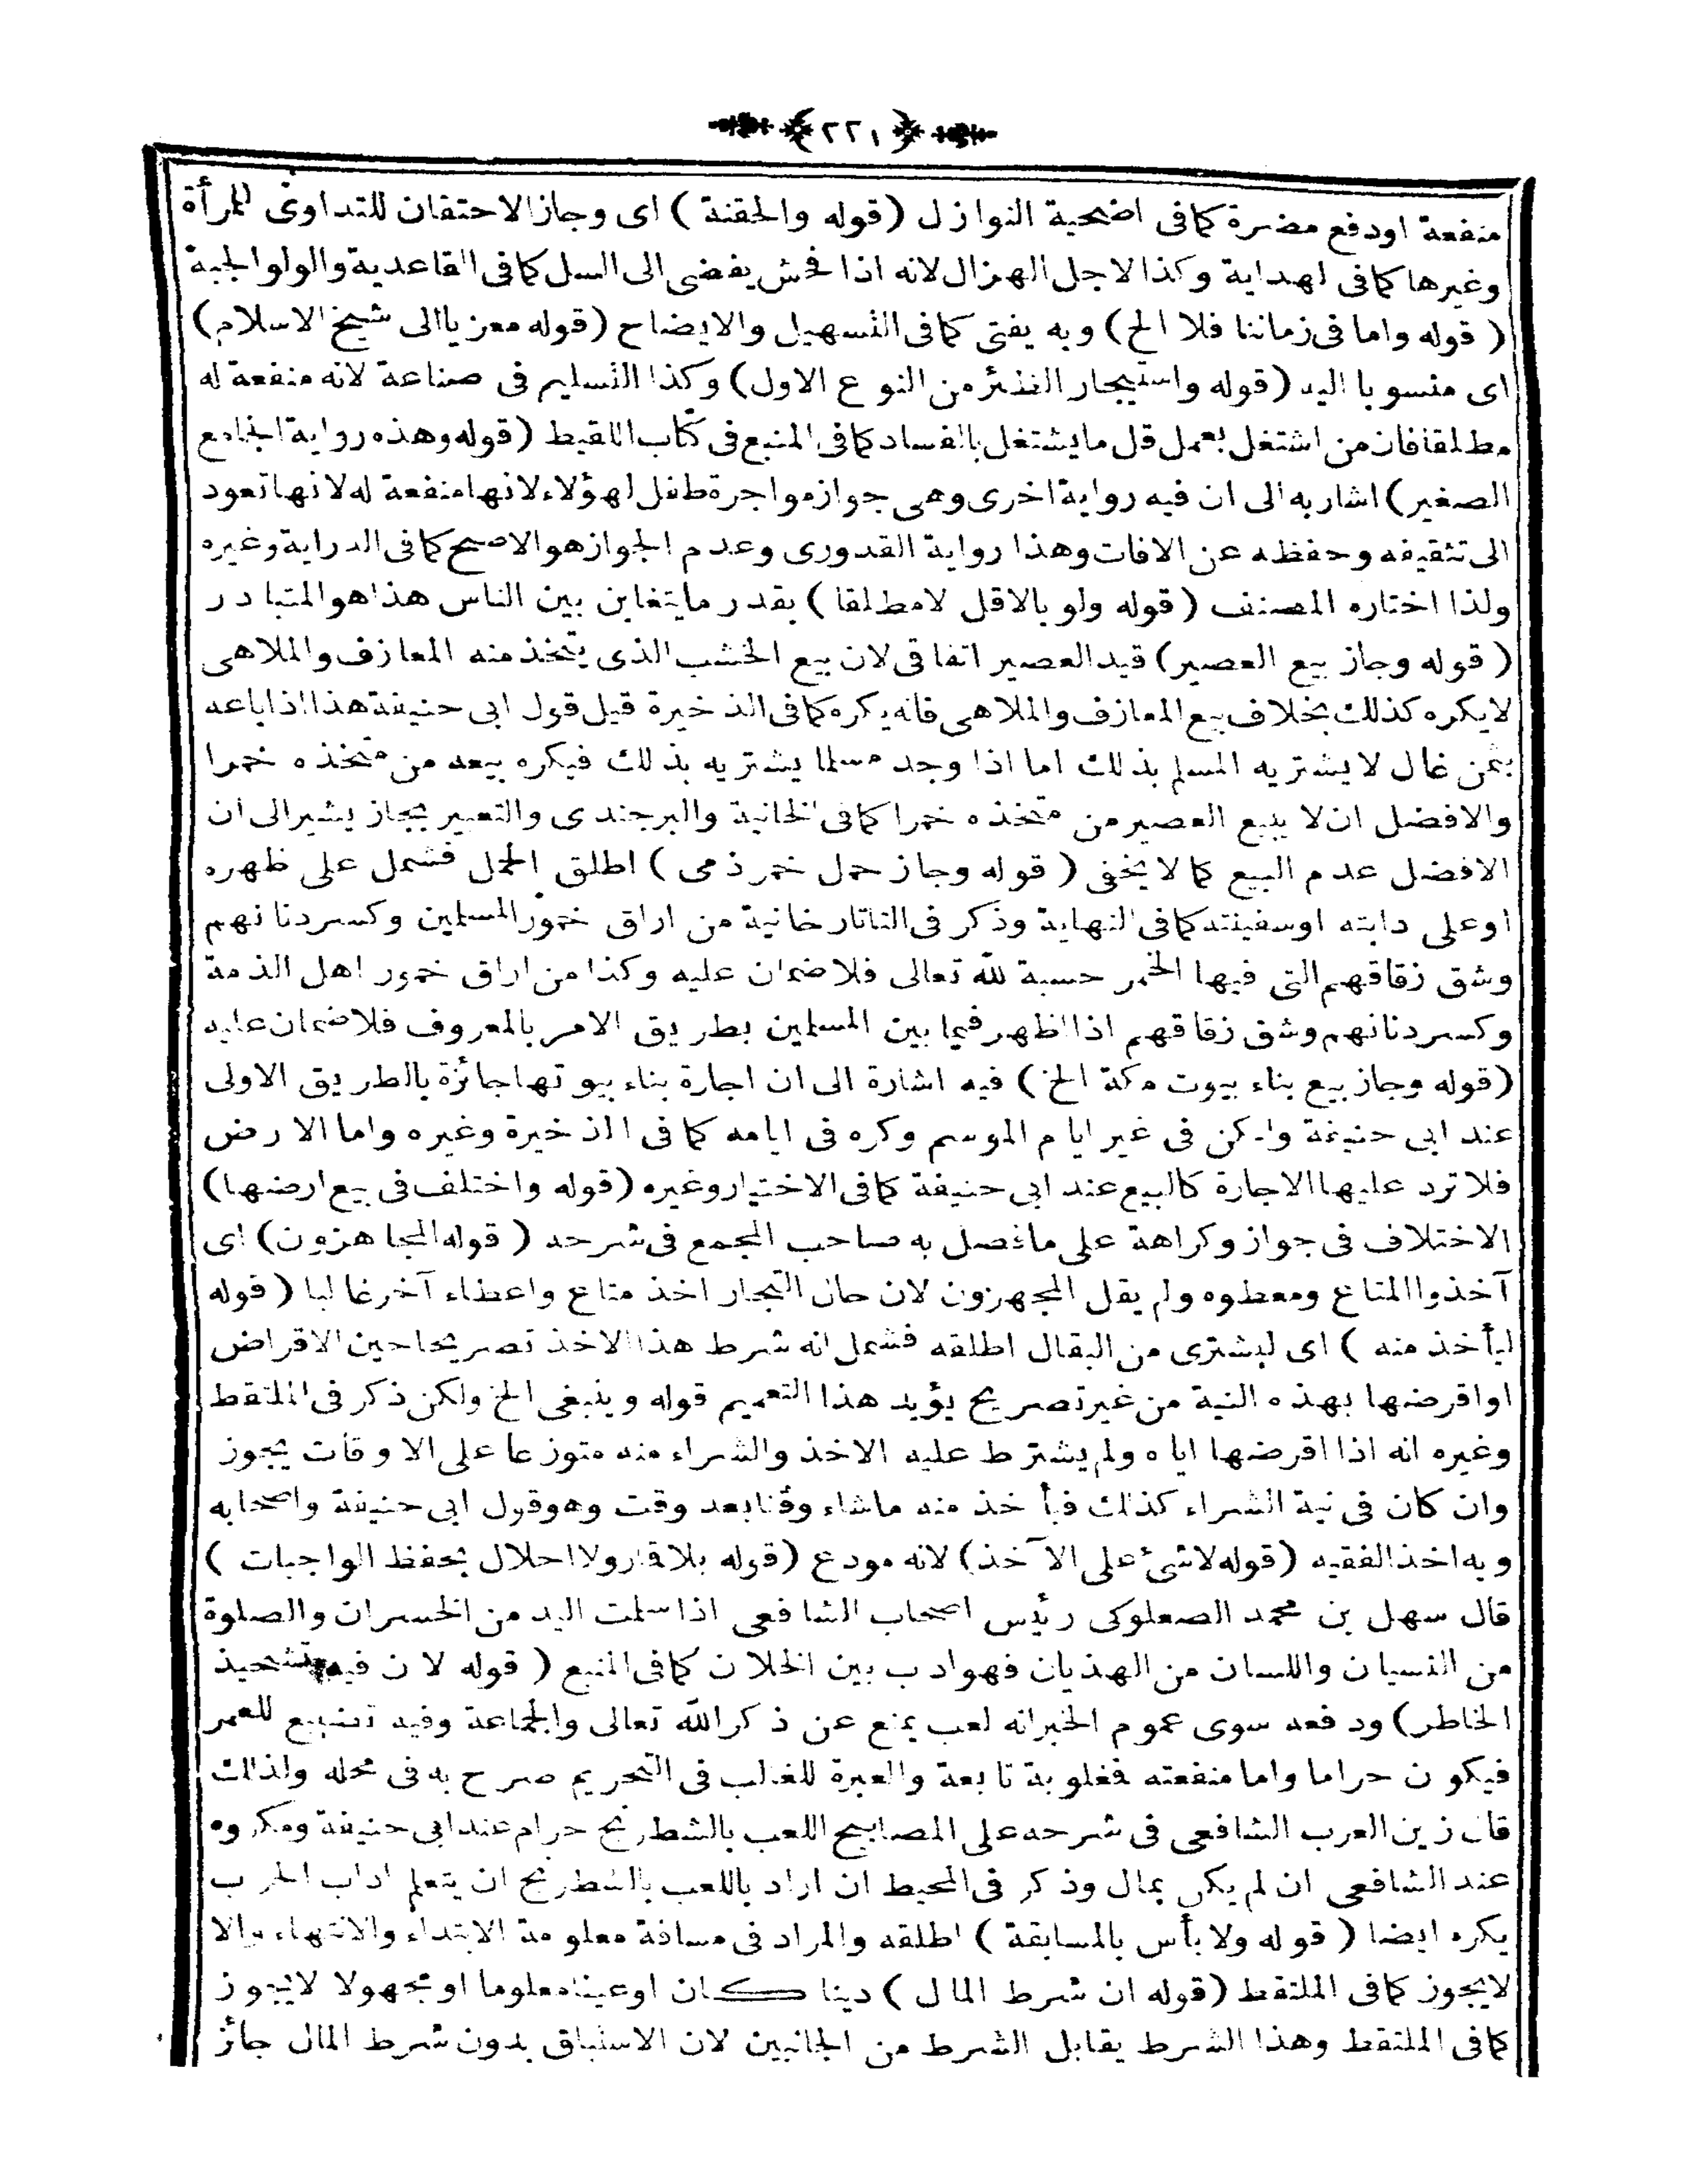 ﴿٢٢١﴾
منفعة اودفع مضرة كما فى اضحية النوازل (قوله والحقنة) اى وجاز الاحتقان للتداوى للمرأة
وغيرها كما فى الهداية وكذا لاجل الهزال لانه اذا فحش يفضى الى السل كما فى القاعدية والولوالجية
(قوله واما فى زماننا فلا الخ) وبه يفتى كما فى التسهيل والايضاح (قوله معزيا الى شيخ الاسلام)
اى منسوبا اليه (قوله واستيجار الظئر من النوع الاول) وكذا التسليم فى صناعة لانه منفعة له
مطلقا فان من اشتغل بعمل قل ما يشتغل بالفساد كما فى المنبع فى كتاب اللقيط (قوله وهذه رواية الجامع
الصغير) اشار به الى ان فيه رواية اخرى وهى جواز مواجرة طفل لهؤلاء لانها منفعة له لانها تعود
الى تثقيفه وحفظه عن الافات وهذا رواية القدورى وعدم الجواز هو الاصح كما فى الدراية وغيره
ولذا اختاره المصنف (قوله ولو بالاقل لا مطلقا) بقدر ما يتغابن بين الناس هذا هو المتبادر
(قوله وجاز بيع العصير) قيد العصير اتفاقى لان بيع الخشب الذى يتخذ منه المعازف والملاهى
لا يكره كذلك بخلاف بيع المعازف والملاهى فانه يكره كما فى الذخيرة قيل قول ابى حنيفة هذا اذا باعه
بثمن غال لا يشتريه المسلم بذلك اما اذا وجد مسلما يشتريه بذلك فيكره بيعه من متخذه خمرا
والافضل ان لا يبيع العصير من متخذه خمرا كما فى الخانية والبرجندى والتعبير بجاز يشير الى ان
الافضل عدم البيع كما لا يخفى (قوله وجاز حمل خمر ذمى) اطلق الحمل فشمل على ظهره
او على دابته او سفينته كما فى النهاية وذكر فى التاتارخانية من اراق خمور المسلمين وكسر دنانهم
وشق زقاقهم التى فيها الخمر حسبة لله تعالى فلا ضمان عليه وكذا من اراق خمور اهل الذمة
وكسر دنانهم وشق زقاقهم اذا اظهر فيما بين المسلمين بطريق الامر بالمعروف فلا ضمان عليه
(قوله وجاز بيع بناء بيوت مكة الخ) فيه اشارة الى ان اجارة بناء بيوتها جائزة بالطريق الاولى
عند ابى حنيفة ولكن فى غير ايام الموسم وكره فى ايامه كما فى الذخيرة وغيره واما الارض
فلا ترد عليها الاجارة كالبيع عند ابى حنيفة كما فى الاختيار وغيره (قوله واختلف فى بيع ارضها)
الاختلاف فى جواز وكراهة على ما فصل به صاحب المجمع فى شرحه (قوله المجاهزون) اى
آخذوا المتاع ومعطوه ولم يقل المجهزون لان حال التجار اخذ متاع واعطاء آخر غالبا (قوله
ليأخذ منه) اى ليشترى من البقال اطلقه فشمل انه شرط هذا الاخذ تصريحا حين الاقراض
او اقرضها بهذه النية من غير تصريح يؤيد هذا التعميم قوله وينبغى الخ ولكن ذكر فى الملتقط
وغيره انه اذا اقرضها اياه ولم يشترط عليه الاخذ والشراء منه متوزعا على الاوقات يجوز
وان كان فى نية الشراء كذلك فيأخذ منه ماشاء وقتا بعد وقت وهو قول ابى حنيفة واصحابه
وبه اخذ الفقيه (قوله لاشئ على الآخذ) لانه مودع (قوله بلا قمار ولا اخلال بحفظ الواجبات)
قال سهل بن محمد الصعلوكى رئيس اصحاب الشافعى اذا سلمت اليد من الخسران والصلوة
من النسيان واللسان من الهذيان فهو ادب بين الخلان كما فى المنبع (قوله لان فيه تشحيذ
الخاطر) ودفعه سوى عموم الخبرانه لعب يمنع عن ذكر الله تعالى والجماعة وفيه تضييع للعمر
فيكون حراما واما منفعته فمغلوبة تابعة والعبرة للغالب فى التحريم صرح به فى محله ولذلك
قال زين العرب الشافعى فى شرحه على المصابيح اللعب بالشطرنج حرام عند ابى حنيفة ومكروه
عند الشافعى ان لم يكن بمال وذكر فى المحيط ان اراد باللعب بالشطرنج ان يتعلم اداب الحرب
يكره ايضا (قوله ولا بأس بالمسابقة) اطلقه والمراد فى مسافة معلومة الابتداء والانتهاء والا
لا يجوز كما فى الملتقط (قوله ان شرط المال) دينا كان او عينا معلوما او مجهولا لا يجوز
كما فى الملتقط وهذا الشرط يقابل الشرط من الجانبين لان الاستباق بدون شرط المال جائز